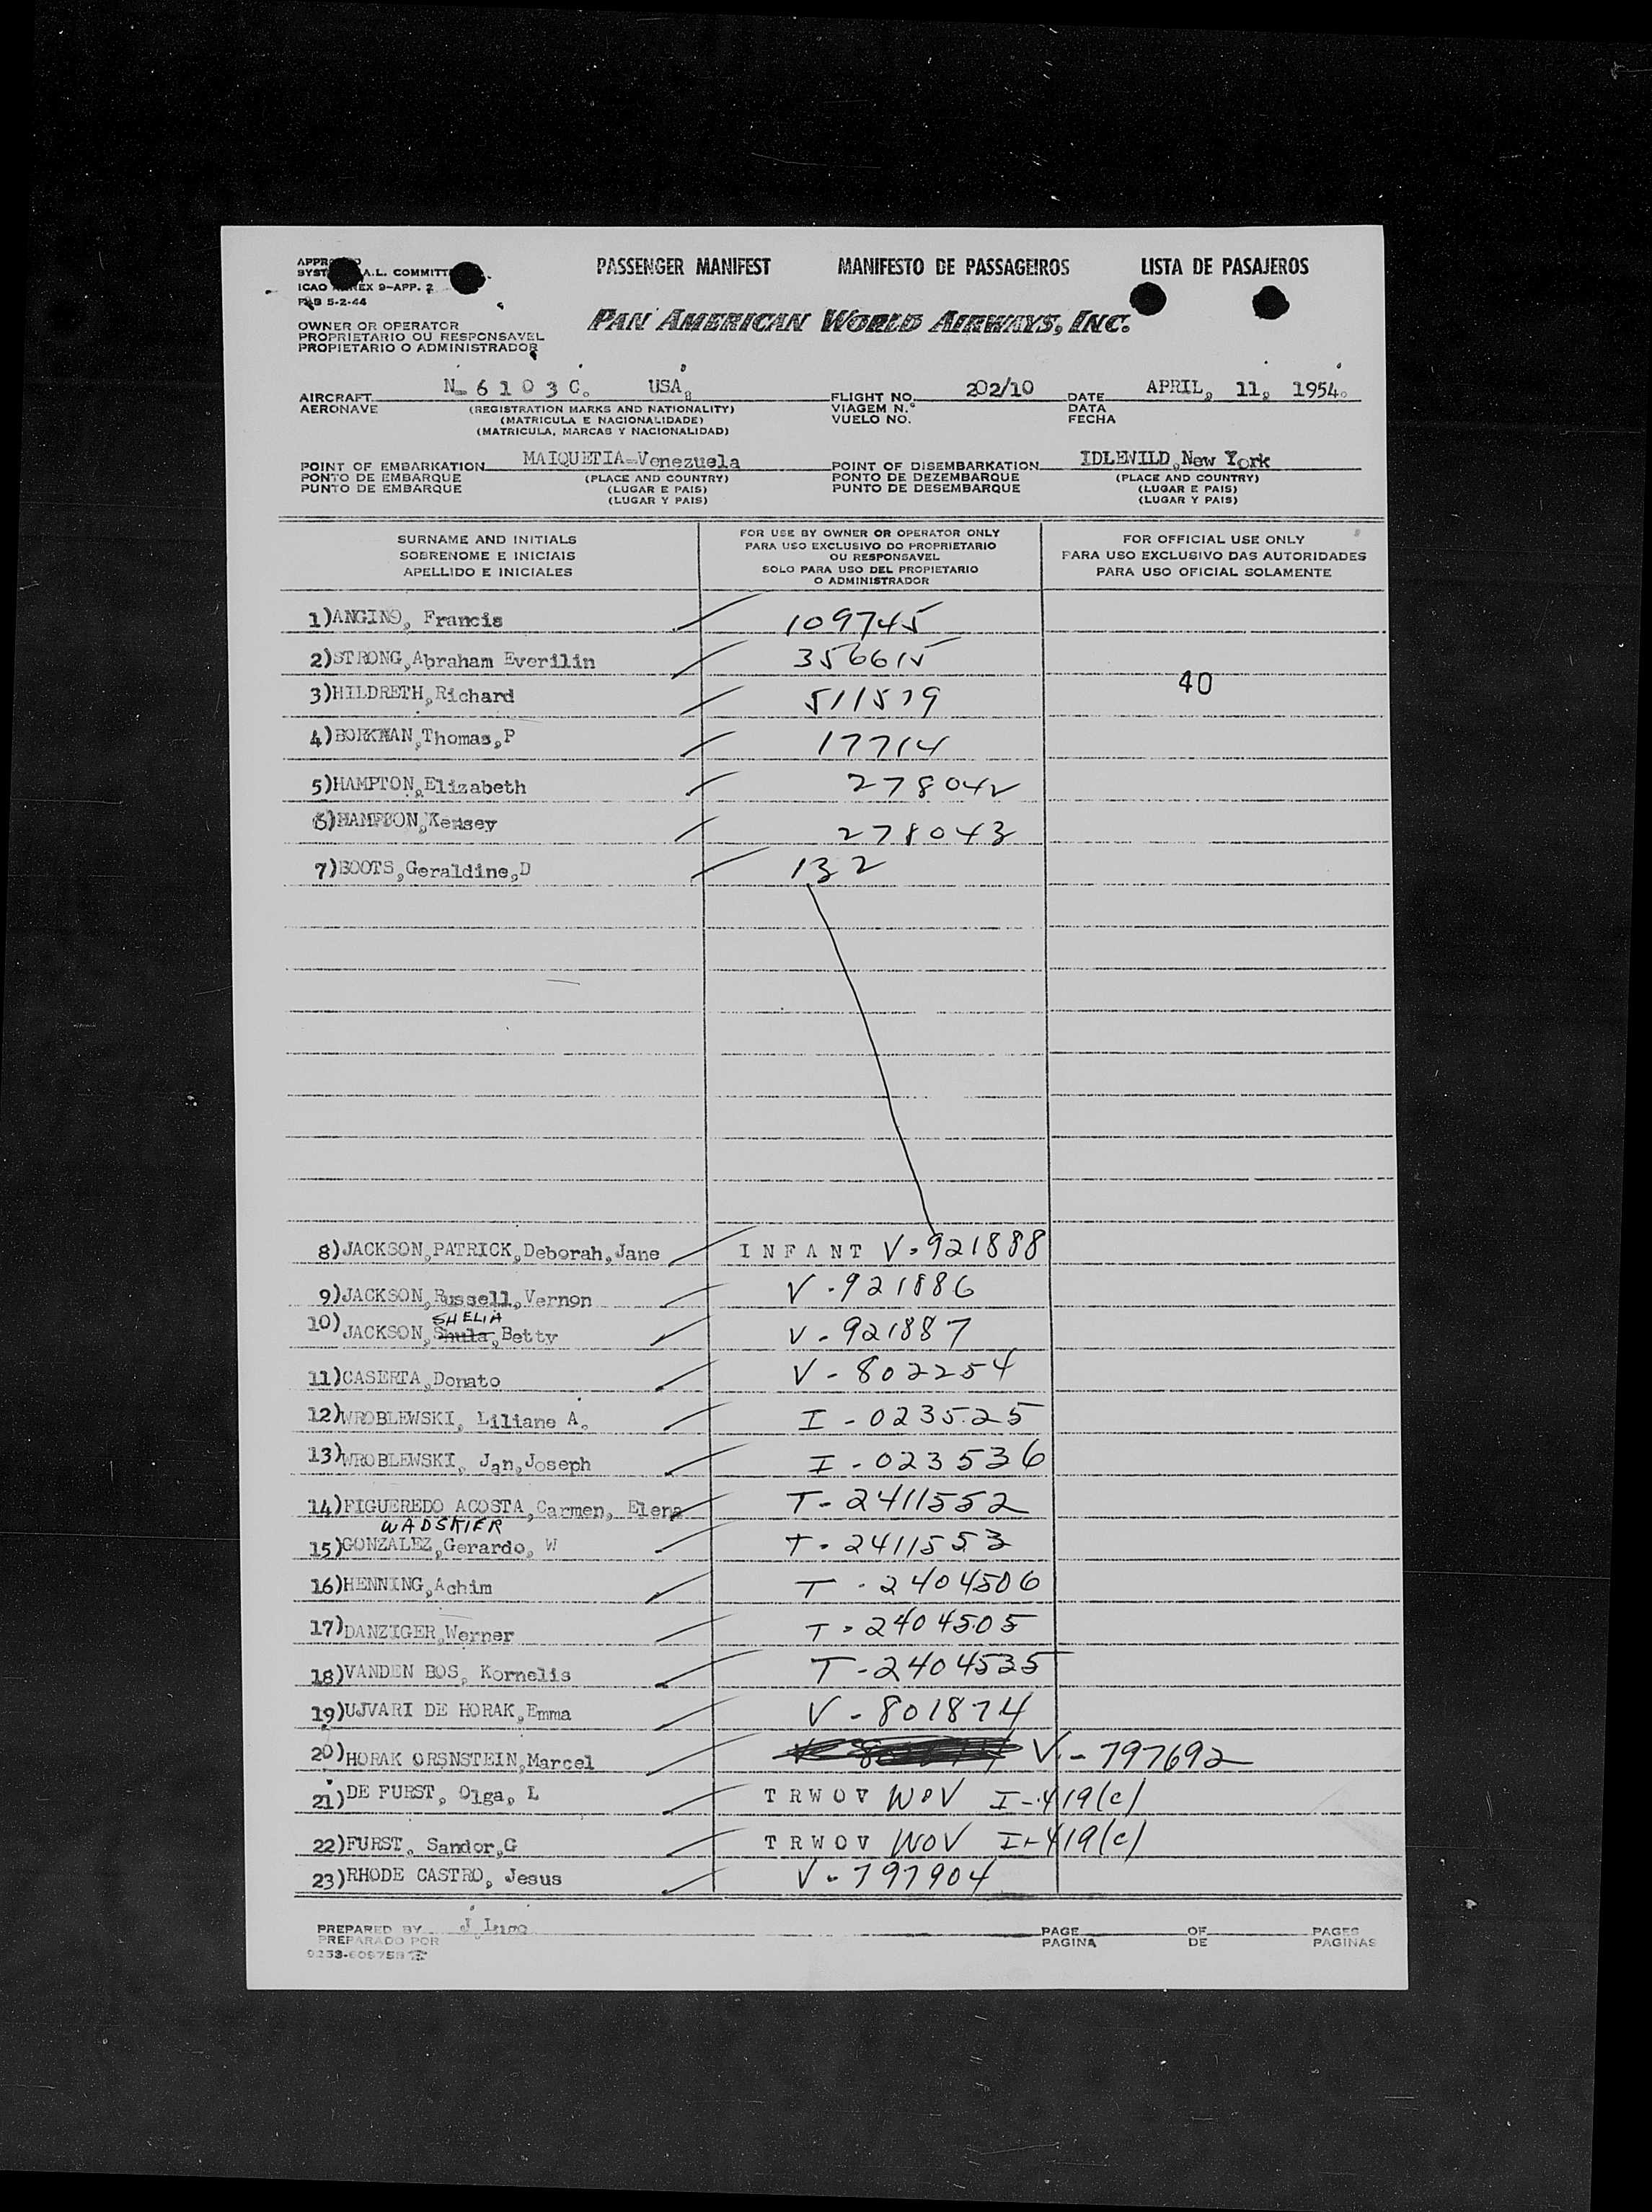 PASSENGER MANIFEST MANIFESTO DE PASSAGEIROS LISTA DE PASAJEROS
A.L. COMMITT
ICAO EX 9-APP. 2
5-2-44
PAN AMERICAN WORLD AIRWAYS, INC.
OWNER OR OPERATOR
PROPRIETARIO OU RESPONSAVEL
PROPIETARIO O ADMINISTRADOR
AIRCRAFT N-6103C. USA. FLIGHT NO. 202/10 DATE APRIL, 11, 1954.
AERONAVE (REGISTRATION MARKS AND NATIONALITY) VIAGEM N.° DATA
(MATRICULA E NACIONALIDADE) VUELO NO. FECHA
(MATRICULA, MARCAS Y NACIONALIDAD)
POINT OF EMBARKATION MAIQUETIA-Venezuela POINT OF DISEMBARKATION IDLEWILD, New York
PONTO DE EMBARQUE (PLACE AND COUNTRY) PONTO DE DEZEMBARQUE (PLACE AND COUNTRY)
PUNTO DE EMBARQUE (LUGAR E PAIS) PUNTO DE DESEMBARQUE (LUGAR E PAIS)
(LUGAR Y PAIS) (LUGAR Y PAIS)
SURNAME AND INITIALS
SOBRENOME E INICIAIS
APELLIDO E INICIALES
FOR USE BY OWNER OR OPERATOR ONLY
PARA USO EXCLUSIVO DO PROPRIETARIO
OU RESPONSAVEL
SOLO PARA USO DEL PROPIETARIO
O ADMINISTRADOR
FOR OFFICIAL USE ONLY
PARA USO EXCLUSIVO DAS AUTORIDADES
PARA USO OFICIAL SOLAMENTE
1)ANGINO, Francis 109745
2)STRONG,Abraham Everilin 356615
40
3)HILDRETH,Richard 511579
4)BORKMAN,Thomas,P 17714
5)HAMPTON,Elizabeth 278042
6)HAMPTON,Kensey 278043
7)BOOTS,Geraldine,D 132
8)JACKSON,PATRICK,Deborah,Jane INFANT V-921888
9)JACKSON,Russell,Vernon V-921886
SHELIA
10)JACKSON,Shula,Betty V-921887
11)CASERTA,Donato V-802254
12)WROBLEWSKI, Liliane A. I-023525
13)WROBLEWSKI, Jan,Joseph I-023536
14)FIGUEREDO ACOSTA,Carmen, Elena T-2411552
WADSKIER
15)GONZALEZ,Gerardo, W T-2411553
16)HENNING,Achim T-2404506
17)DANZIGER,Werner T-2404505
18)VANDEN BOS, Kornelis T-2404535
19)UJVARI DE HORAK,Emma V-801874
20)HORAK ORSNSTEIN,Marcel V-797692
21)DE FURST, Olga, L TRWOV WOV I-419(c)
22)FURST, Sandor,G TRWOV WOV I-419(c)
23)RHODE CASTRO, Jesus V-797904
PREPARED BY J Lugo PAGE OF PAGES
PREPARADO POR PAGINA DE PAGINAS